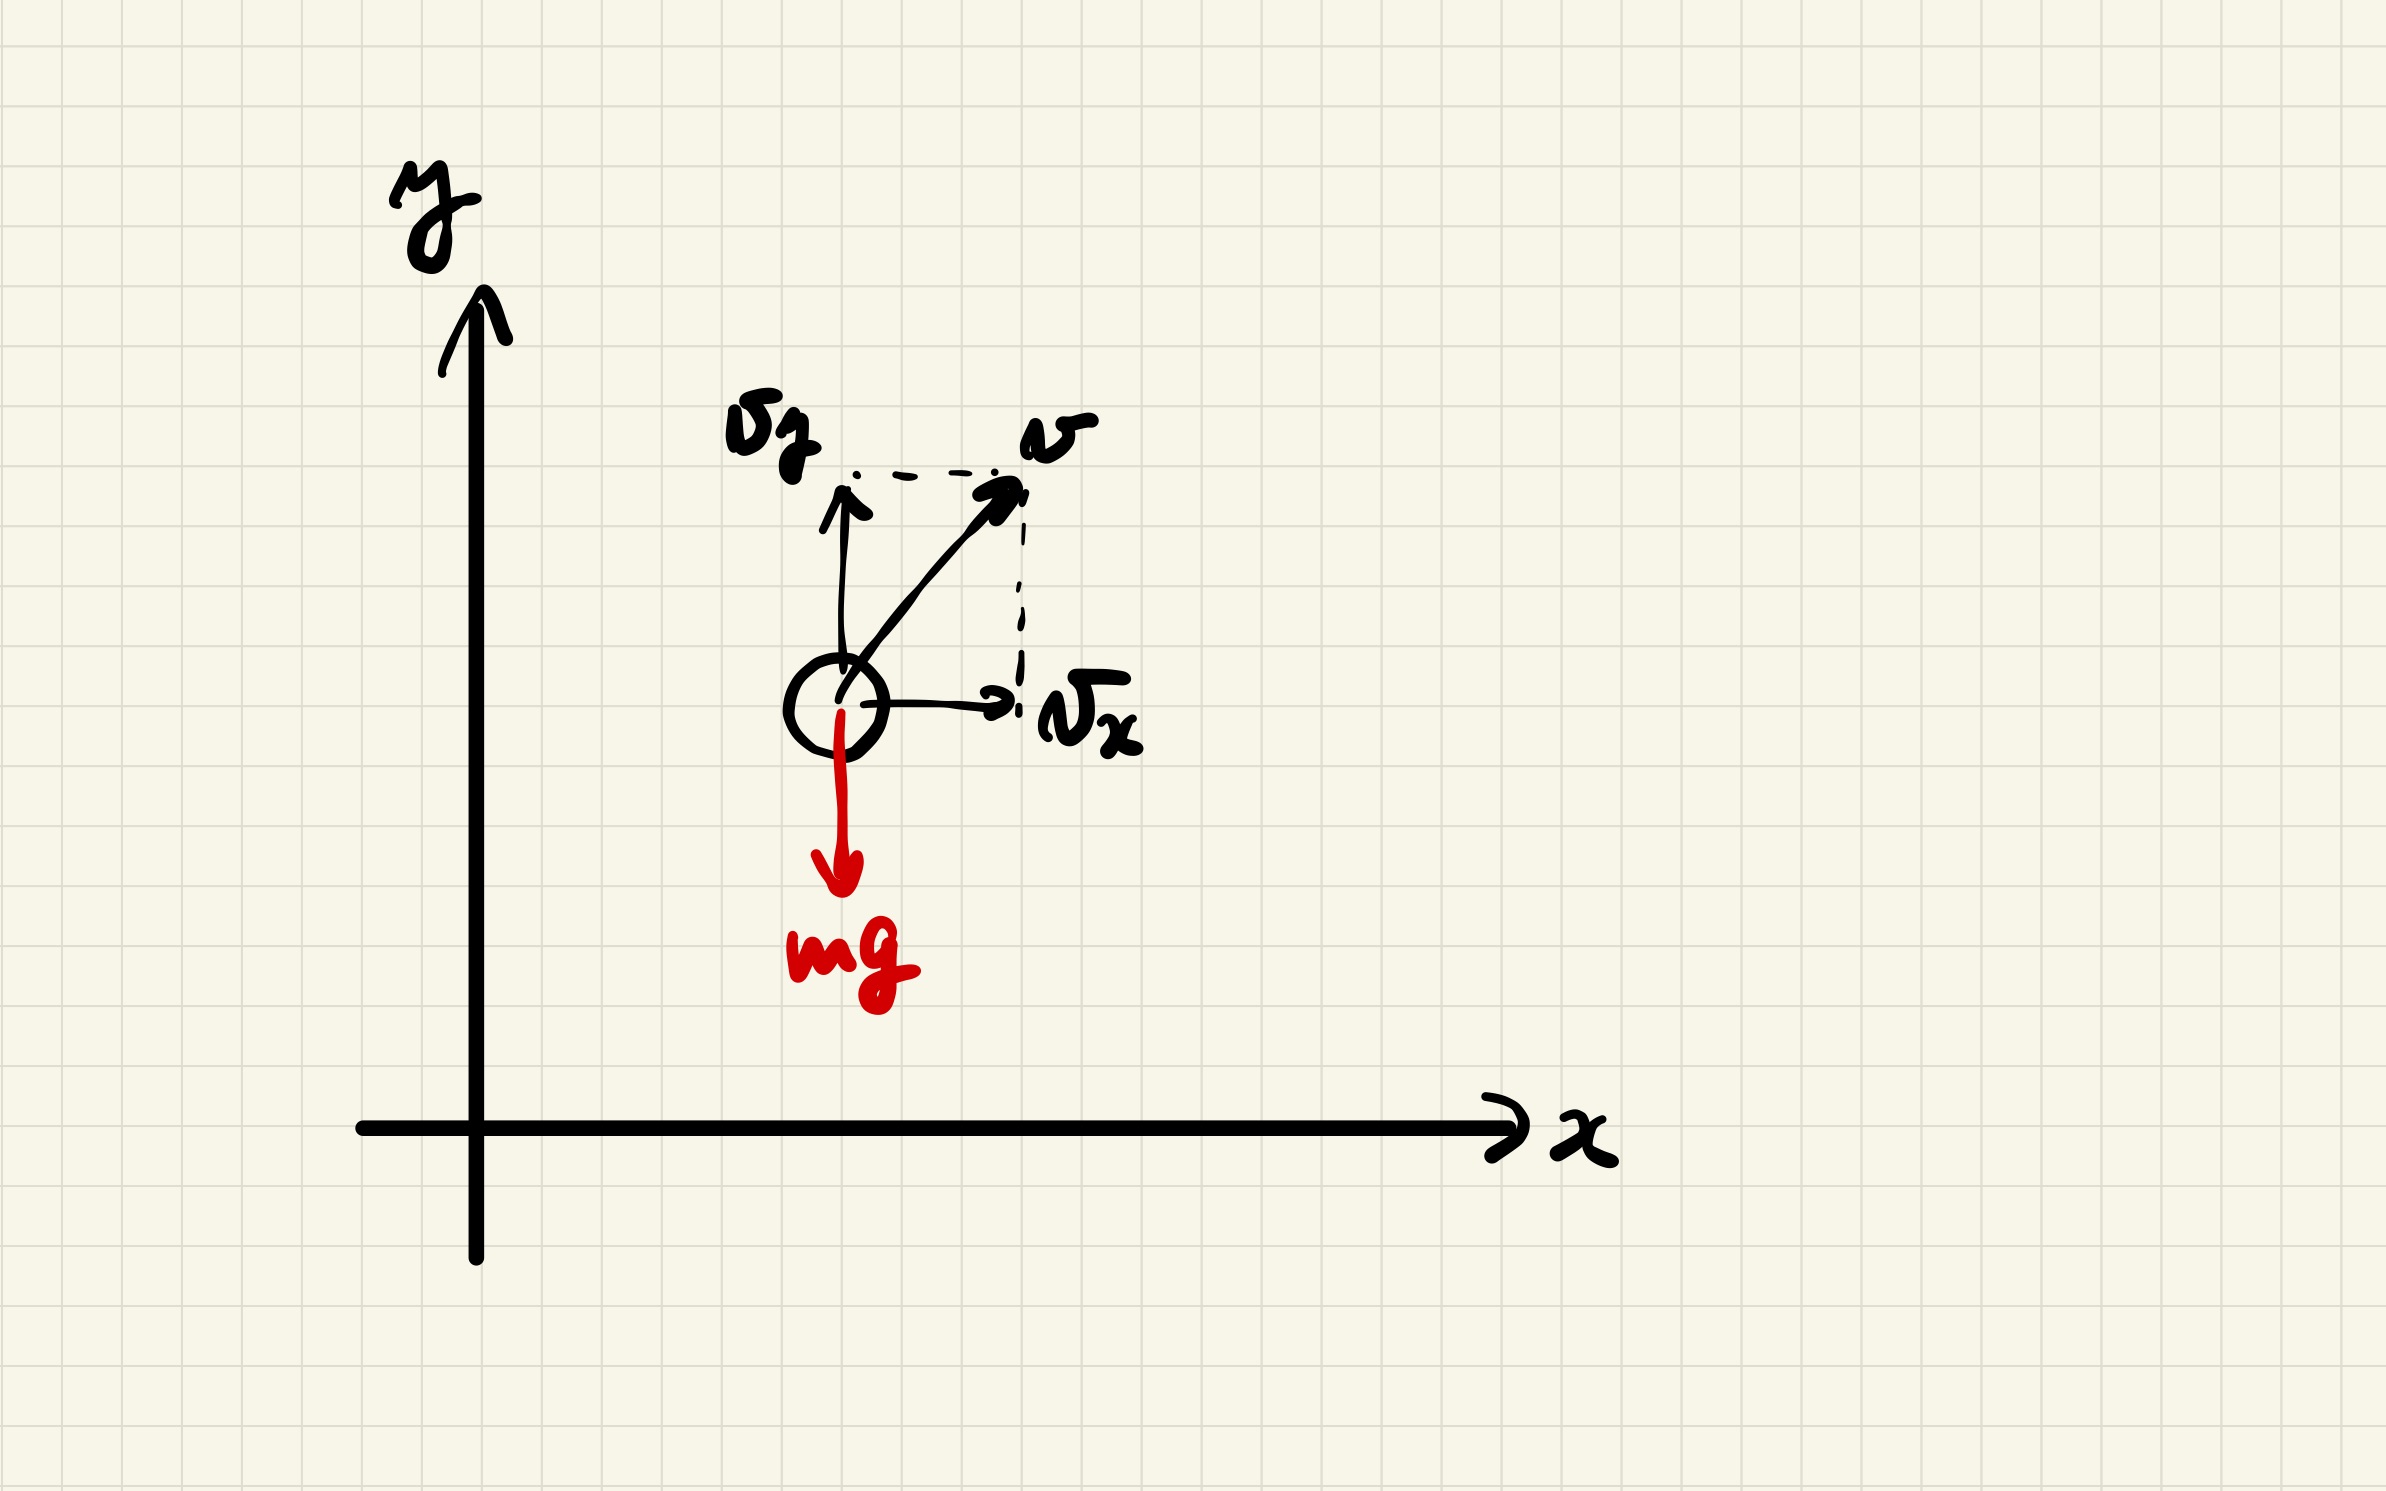 y
v_y
v
v_x
mg
x